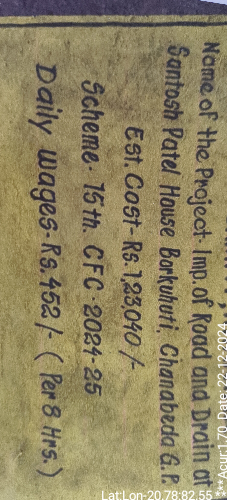 Name of the Project- Imp. of Road and Drain at
Santosh Patel House Borkuhuti, Chanabeda G.P.
Est. Cost- Rs. 1,23040/-
Scheme- 15th. CFC-2024-25
Daily Wages- Rs. 452/- ( Per 8 Hrs. )
***Acur:1.70 Date:22-12-2024
LatLon-20.78:82.55